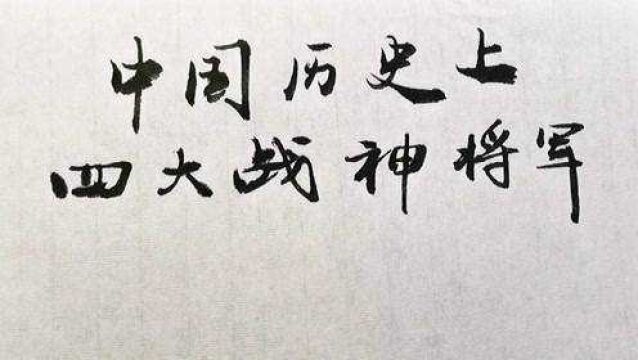 中国历史上
四大战神将军